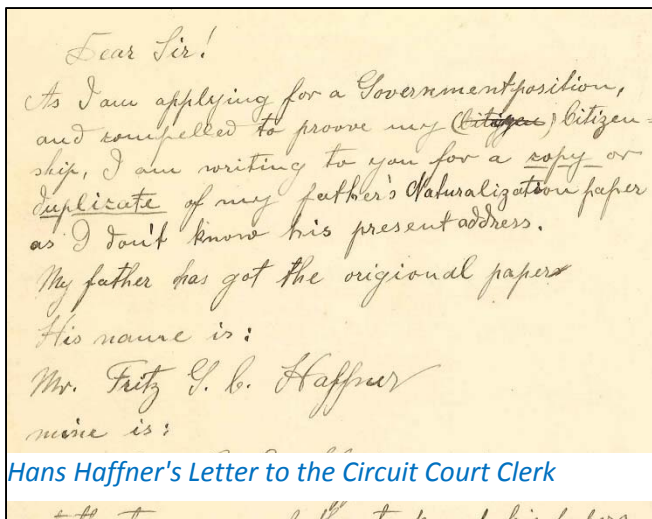 Dear Sir!
As I am applying for a Governmentposition,
and compelled to proove my (Citizen) Citizen=
ship, I am writing to you for a copy or
duplicate of my father's Naturalization paper
as I don't know his present address.
My father has got the origional papers
His name is:
Mr. Fritz G. C. Haffner
mine is:
Hans Haffner's Letter to the Circuit Court Clerk